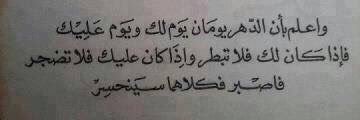 واعلم بأن الدهر يومان يَوم لك ويَوم عَليْك
فإذا كَان لك فلا تبطر وإذَا كان عليك فلا تضجر
فاصْبر فكلاهما سيَنحسِرْ